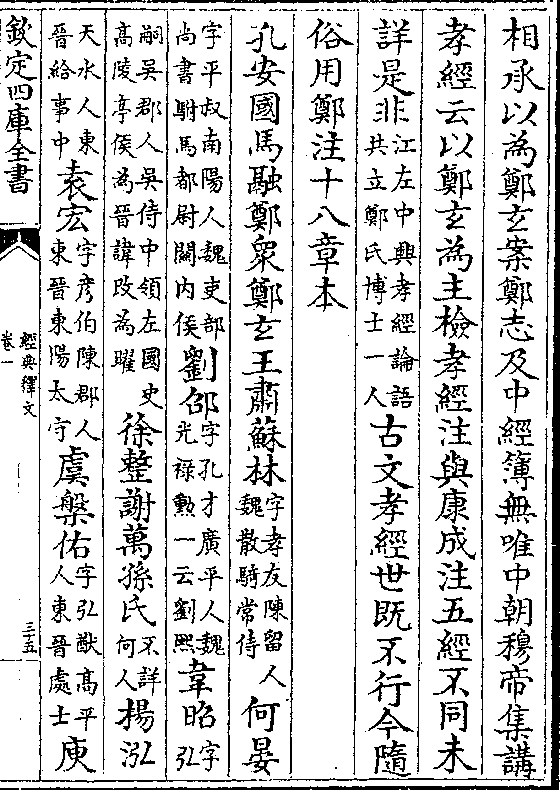 相承以為鄭𤣥案鄭志及中經簿無唯中朝穆帝集講
孝經云以鄭𤣥為主檢孝經注與康成注五經不同未
詳是非江左中興孝經論語共立鄭氏博士一人古文孝經世既不行今隨
俗用鄭注十八章本
孔安國馬融鄭衆鄭𤣥王肅蘇林字孝友陳留人魏散騎常侍何晏
字平叔南陽人魏吏部尚書駙馬都尉關内侯劉邵字孔才廣平人魏光祿勲一云劉熙韋昭字弘
嗣吳郡人吳侍中領左國史髙陵亭侯為晉諱改為曜徐整謝萬孫氏不詳何人楊泓
天水人東晉給事中袁宏字彦伯陳郡人東晉東陽太守虞槃佑字弘猷髙平人東晉處士庾
欽定四庫全書
經典釋文
卷一
三五